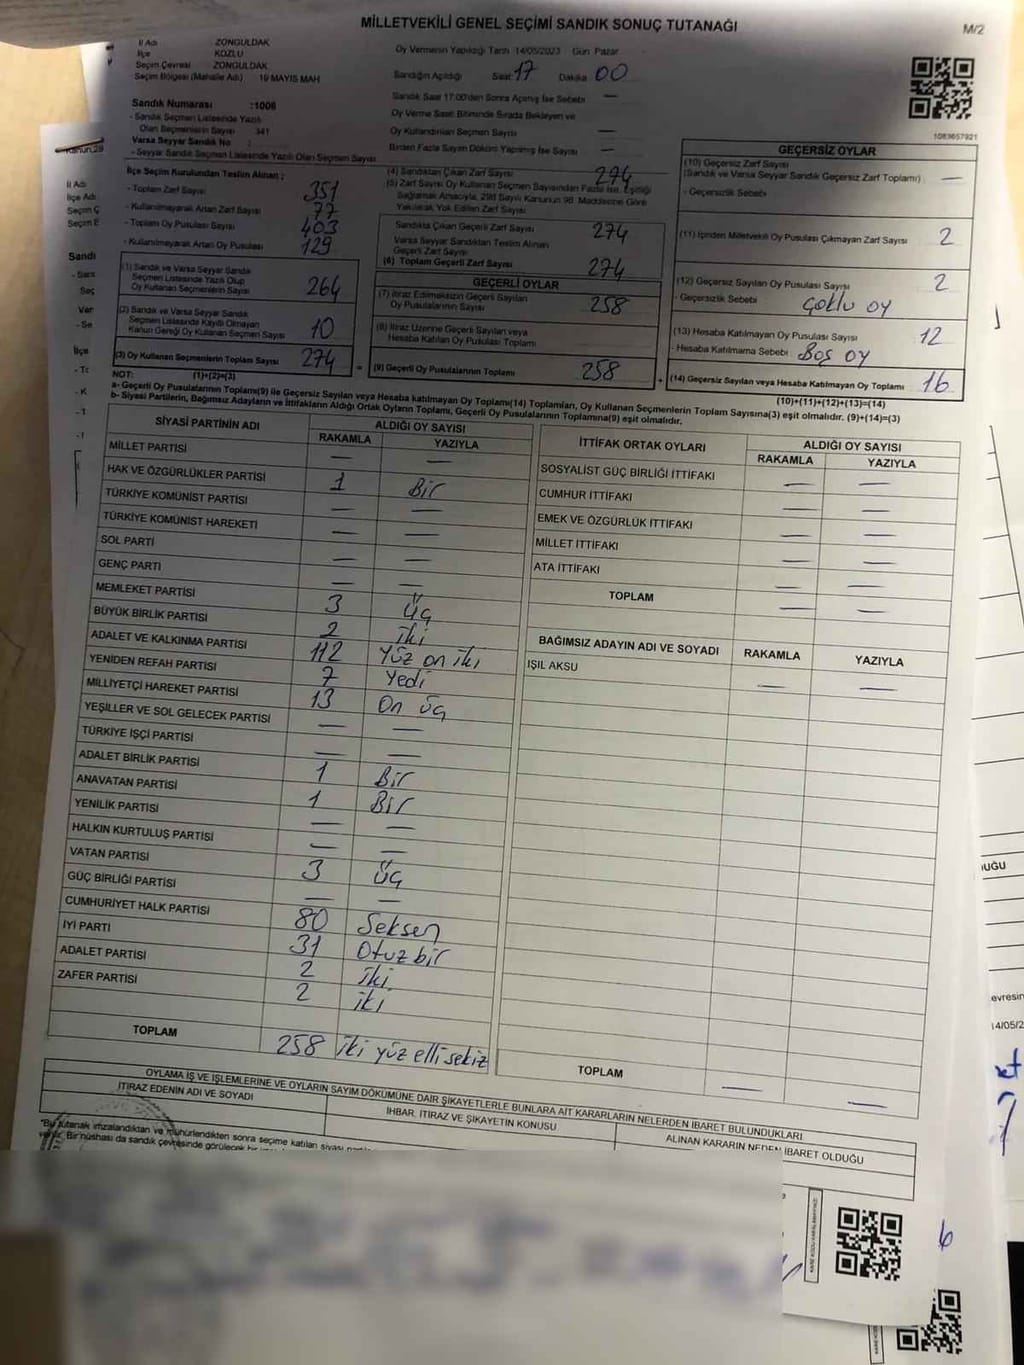 MİLLETVEKİLİ GENEL SEÇİMİ SANDIK SONUÇ TUTANAĞI
M/2
İl Adı ZONGULDAK
İlçe KOZLU
Seçim Çevresi ZONGULDAK
Seçim Bölgesi (Mahalle Adı) 19 MAYIS MAH
Oy Vermenin Yapıldığı Tarih 14/05/2023 Gün Pazar
Sandığın Açıldığı Saat 17 Dakika 00
Sandık Saat 17:00'den Sonra Açılmış İse Sebebi —
Oy Verme Saati Bitiminde Sırada Bekleyen ve
Oy Kullandırılan Seçmen Sayısı —
Birden Fazla Sayım Döküm Yapılmış İse Sayısı —
1083657921
Sandık Numarası :1006
- Sandık Seçmen Listesinde Yazılı
Olan Seçmenlerin Sayısı 341
Varsa Seyyar Sandık No :
- Seyyar Sandık Seçmen Listesinde Yazılı Olan Seçmen Sayısı
İlçe Seçim Kurulundan Teslim Alınan ;
- Toplam Zarf Sayısı 351
- Kullanılmayarak Artan Zarf Sayısı 77
- Toplam Oy Pusulası Sayısı 403
- Kullanılmayarak Artan Oy Pusulası 129
(1) Sandık ve Varsa Seyyar Sandık
Seçmen Listesinde Yazılı Olup
Oy Kullanan Seçmenlerin Sayısı 264
(2) Sandık ve Varsa Seyyar Sandık
Seçmen Listesinde Kayıtlı Olmayan
Kanun Gereği Oy Kullanan Seçmen Sayısı 10
(3) Oy Kullanan Seçmenlerin Toplam Sayısı 274
(4) Sandıktan Çıkan Zarf Sayısı 274
(5) Zarf Sayısı Oy Kullanan Seçmen Sayısından Fazla ise, Eşitliği
Sağlamak Amacıyla, 298 Sayılı Kanunun 98. Maddesine Göre
Yakılarak Yok Edilen Zarf Sayısı
Sandıkta Çıkan Geçerli Zarf Sayısı 274
Varsa Seyyar Sandıktan Teslim Alınan
Geçerli Zarf Sayısı
(6) Toplam Geçerli Zarf Sayısı 274
GEÇERLİ OYLAR
(7) İtiraz Edilmeksizin Geçerli Sayılan
Oy Pusulalarının Sayısı 258
(8) İtiraz Üzerine Geçerli Sayılan veya
Hesaba Katılan Oy Pusulası Toplamı
(9) Geçerli Oy Pusulalarının Toplamı 258
GEÇERSİZ OYLAR
(10) Geçersiz Zarf Sayısı
(Sandık ve Varsa Seyyar Sandık Geçersiz Zarf Toplamı) —
- Geçersizlik Sebebi
(11) İçinden Milletvekili Oy Pusulası Çıkmayan Zarf Sayısı 2
(12) Geçersiz Sayılan Oy Pusulası Sayısı 2
- Geçersizlik Sebebi Çoklu oy
(13) Hesaba Katılmayan Oy Pusulası Sayısı 12
- Hesaba Katılmama Sebebi Boş oy
(14) Geçersiz Sayılan veya Hesaba Katılmayan Oy Toplamı 16
NOT: (1)+(2)=(3)
(10)+(11)+(12)+(13)=(14)
a- Geçerli Oy Pusulalarının Toplamı(9) ile Geçersiz Sayılan veya Hesaba katılmayan Oy Toplamı(14) Toplamları, Oy Kullanan Seçmenlerin Toplam Sayısına(3) eşit olmalıdır. (9)+(14)=(3)
b- Siyasi Partilerin, Bağımsız Adayların ve İttifakların Aldığı Ortak Oyların Toplamı, Geçerli Oy Pusulalarının Toplamına(9) eşit olmalıdır.
SİYASİ PARTİNİN ADI ALDIĞI OY SAYISI
RAKAMLA YAZIYLA
MİLLET PARTİSİ — —
HAK VE ÖZGÜRLÜKLER PARTİSİ 1 Bir
TÜRKİYE KOMÜNİST PARTİSİ — —
TÜRKİYE KOMÜNİST HAREKETİ — —
SOL PARTİ — —
GENÇ PARTİ — —
MEMLEKET PARTİSİ 3 Üç
BÜYÜK BİRLİK PARTİSİ 2 iki
ADALET VE KALKINMA PARTİSİ 112 Yüz on iki
YENİDEN REFAH PARTİSİ 7 Yedi
MİLLİYETÇİ HAREKET PARTİSİ 13 On üç
YEŞİLLER VE SOL GELECEK PARTİSİ — —
TÜRKİYE İŞÇİ PARTİSİ — —
ADALET BİRLİK PARTİSİ 1 Bir
ANAVATAN PARTİSİ 1 Bir
YENİLİK PARTİSİ — —
HALKIN KURTULUŞ PARTİSİ — —
VATAN PARTİSİ 3 Üç
GÜÇ BİRLİĞİ PARTİSİ — —
CUMHURİYET HALK PARTİSİ 80 Seksen
İYİ PARTİ 31 Otuz bir
ADALET PARTİSİ 2 iki
ZAFER PARTİSİ 2 iki
TOPLAM 258 iki yüz elli sekiz
İTTİFAK ORTAK OYLARI ALDIĞI OY SAYISI
RAKAMLA YAZIYLA
SOSYALİST GÜÇ BİRLİĞİ İTTİFAKI — —
CUMHUR İTTİFAKI — —
EMEK VE ÖZGÜRLÜK İTTİFAKI — —
MİLLET İTTİFAKI — —
ATA İTTİFAKI — —
TOPLAM — —
BAĞIMSIZ ADAYIN ADI VE SOYADI RAKAMLA YAZIYLA
IŞIL AKSU — —
TOPLAM — —
OYLAMA İŞ VE İŞLEMLERİNE VE OYLARIN SAYIM DÖKÜMÜNE DAİR ŞİKAYETLERLE BUNLARA AİT KARARLARIN NELERDEN İBARET BULUNDUKLARI
İTİRAZ EDENİN ADI VE SOYADI
İHBAR, İTİRAZ VE ŞİKAYETİN KONUSU
ALINAN KARARIN NEDEN İBARET OLDUĞU
"Bu tutanak imzalandıktan ve mühürlendikten sonra seçime katılan siyasi
Bir nüshası da sandık çevresinde görülecek bir